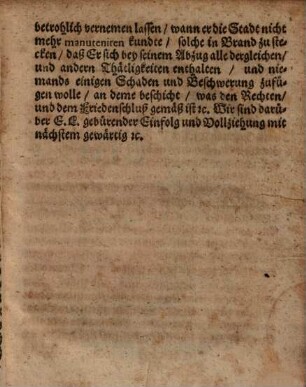 betrohlich vernemen lassen / wann er die Stadt nicht
mehr manuteniren kundte / solche in Brand zu ste-
cken / daß Er sich bey seinem Abzug alle dergleichen /
und andern Thätligkeiten enthalten / und nie-
mands einigen Schaden und Beschwerung zufü-
gen wolle / an deme beschicht / was den Rechten /
und dem Friedenschluß gemäß ist ꝛc. Wir sind darü-
ber E. L. gebürender Einfolg und Vollziehung mit
nächstem gewärtig ꝛc.